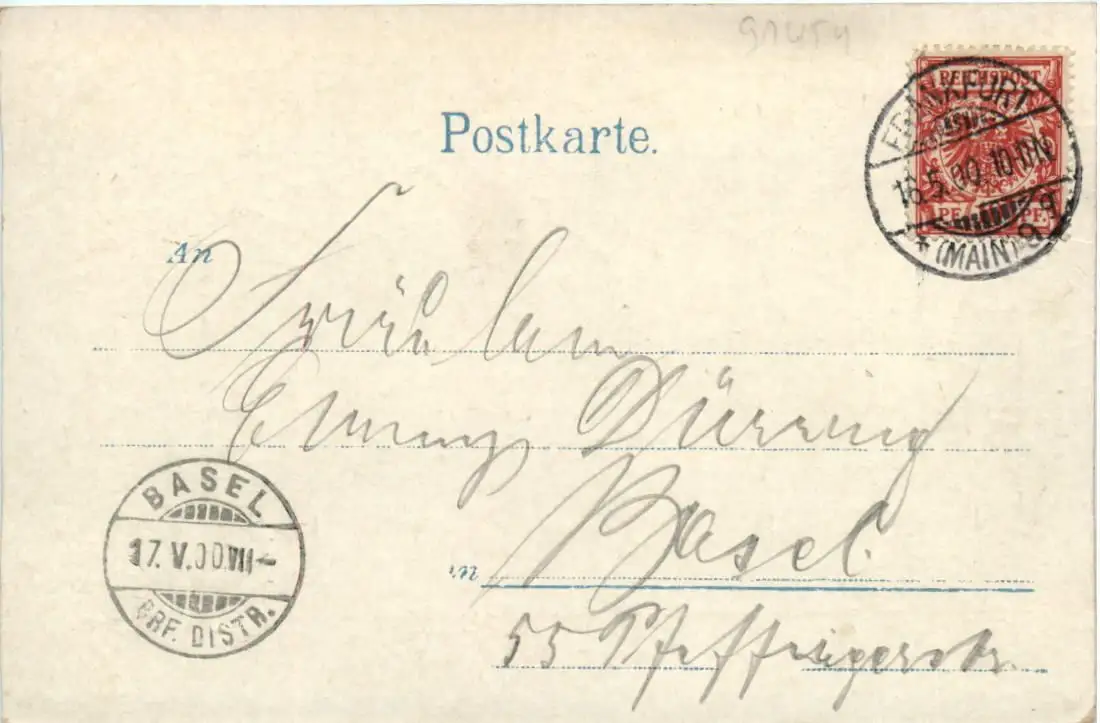 Postkarte.
REICHSPOST
FRANKFURT
16.5.00. 10-11N.
* (MAIN) 9
PF. PF.
An
Fräulein
Emmy Dürring
Basel.
in
55 Pfeffingerstr.
BASEL
17. V. 00. VII
BRF. DISTR.